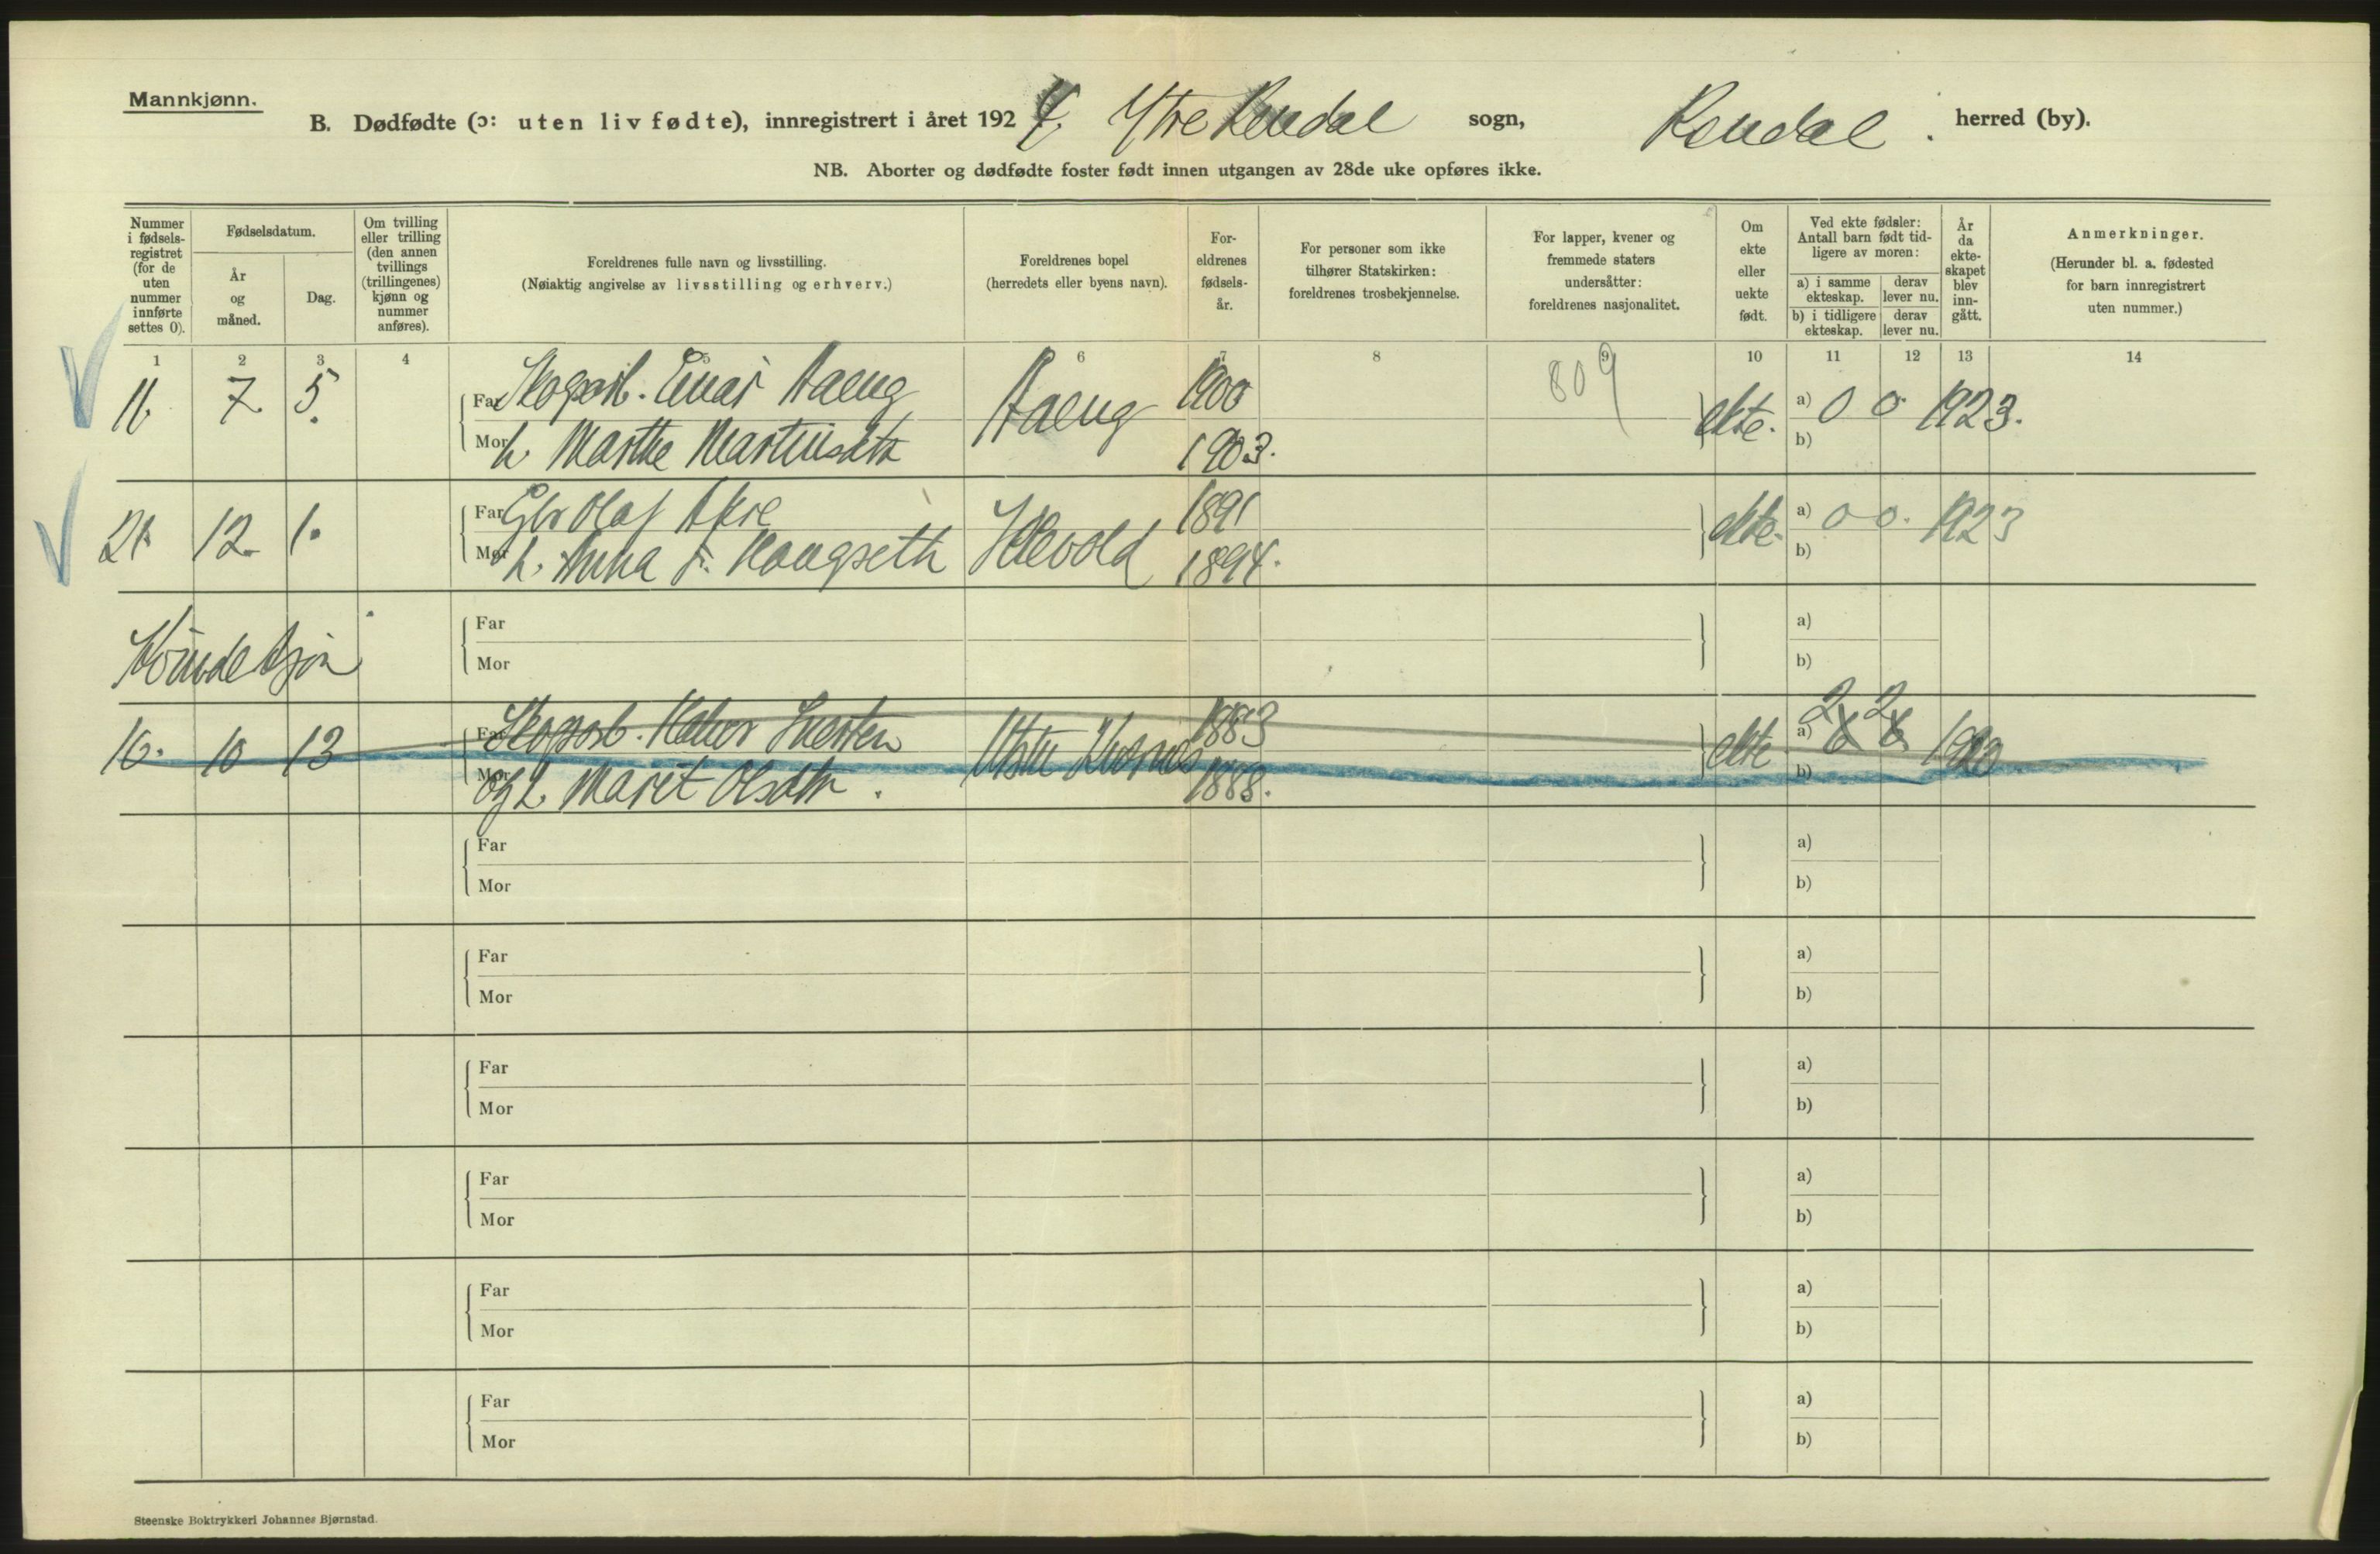 Mannkjønn.
B. Dødfødte (ɔ: uten liv fødte), innregistrert i året 1924. Ytre Rendal sogn, Rendal. herred (by).
NB. Aborter og dødfødte foster født innen utgangen av 28de uke opføres ikke.
Nummer i fødsels-registret (for de uten nummer innførte settes 0).
Fødselsdatum.
År og måned.
Dag.
Om tvilling eller trilling (den annen tvillings (trillingenes) kjønn og nummer anføres).
Foreldrenes fulle navn og livsstilling.
(Nøiaktig angivelse av livsstilling og erhverv.)
Foreldrenes bopel
(herredets eller byens navn).
For-eldrenes fødsels-år.
For personer som ikke tilhører Statskirken: foreldrenes trosbekjennelse.
For lapper, kvener og fremmede staters undersåtter: foreldrenes nasjonalitet.
Om ekte eller uekte født.
Ved ekte fødsler: Antall barn født tid-ligere av moren:
a) i samme ekteskap. derav lever nu.
b) i tidligere ekteskap. derav lever nu.
År da ekte-skapet blev inn-gått.
Anmerkninger.
(Herunder bl. a. fødested for barn innregistrert uten nummer.)
1 2 3 4 5 6 7 8 9 10 11 12 13 14
809
11. 7. 5. Far Skogsarb. Einar Haeng Haeng 1900 ekte. a) 0 0 1923.
Mor h. Marthe Martinsdtr 1903. b)
21. 12. 1. Far Gbr Olaf Akre 1891 ekte. a) 0 0. 1923
Mor h. Anna F. Haugseth 1894. b)
Far a)
Mor b)
16. 10 13 Far Skogsarb. Halvor 1883 ekte a) 2 2
Mor og h. Marit Olsdtr. 1888. b)
Far a)
Mor b)
Far a)
Mor b)
Far a)
Mor b)
Far a)
Mor b)
Far a)
Mor b)
Far a)
Mor b)
Steenske Boktrykkeri Johannes Bjørnstad.